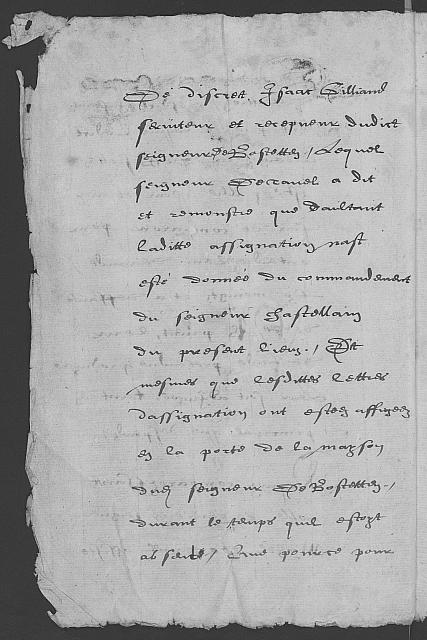 De discret Jsaac Gilliand
serviteur et recepveur dudict
seigneur de Bostetten / Lequel
seigneur Decravel a dit
et remonstre que daultant
laditte assignation nast
esté donnée du commandement
du seigneur chastellain
du present lieu. / Et
mesmes que lesdittes lettres
dassignation ont estez affigeez
en la porte de la mayson
dud seigneur De Bostetten /
durant le temps quil estoyt
absent / Que pource pour